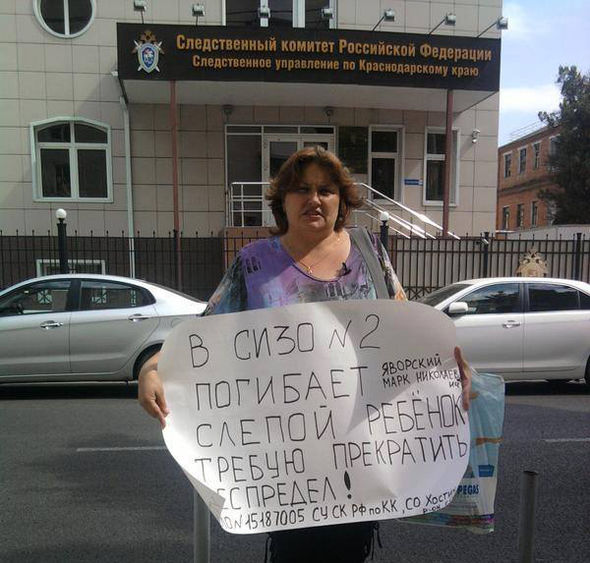 Следственный комитет Российской Федерации
Следственное управление по Краснодарскому краю
В СИЗО №2
ПОГИБАЕТ ЯВОРСКИЙ
МАРК НИКОЛАЕВ
ИЧ
СЛЕПОЙ РЕБЁНОК
ТРЕБУЮ ПРЕКРАТИТЬ
ЕСПРЕДЕЛ!
№15187005 СУ СК РФ по КК, СО Хости
PEGAS